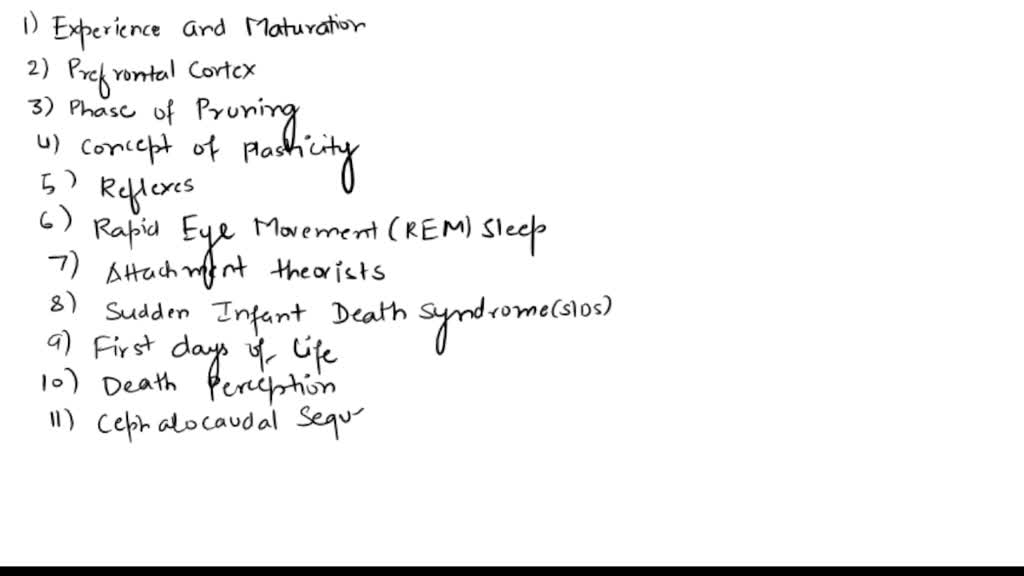 1) Experience and Maturation
2) Prefrontal Cortex
3) Phase of Pruning
4) Concept of Plasticity
5) Reflexes
6) Rapid Eye Movement (REM) Sleep
7) Attachment theorists
8) Sudden Infant Death Syndrome (SIDS)
9) First days of Life
10) Death Perception
11) Cephalocaudal Sequ